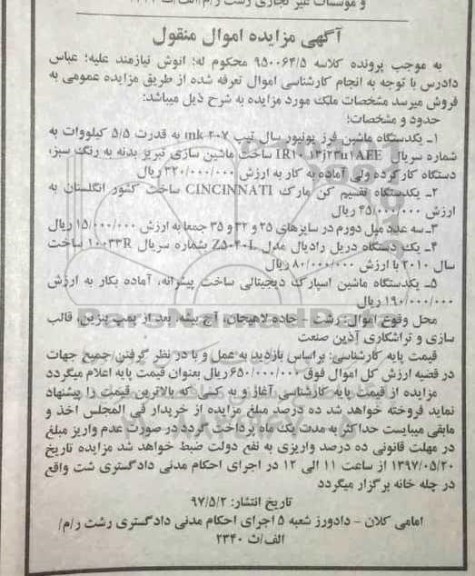 و موسسات غیر تجاری رشت ر/م/الف/ث
آگهی مزایده اموال منقول
به موجب پرونده کلاسه ۹۵۰۰۶۴/۵ محکوم له: انوش نیازمند علیه؛ عباس
دادرس با توجه به انجام کارشناسی اموال تعرفه شده از طریق مزایده عمومی به
فروش میرسد مشخصات ملک مورد مزایده به شرح ذیل میباشد:
حدود و مشخصات:
۱ـ یکدستگاه ماشین فرز یونیور سال تیپ mk ۲۰۷ به قدرت ۵/۵ کیلووات به
شماره سریال ساخت ماشین سازی تبریز بدنه به رنگ سبز،
دستگاه کارکرده ولی آماده به کار به ارزش ۳۲۰/۰۰۰/۰۰۰ ریال
۲ـ یکدستگاه تقسیم کن مارک CINCINNATI ساخت کشور انگلستان به
ارزش ۴۵/۰۰۰/۰۰۰ ریال
۳ـ سه عدد میل دورم در سایزهای ۲۵ و ۳۲ و ۳۵ جمعا به ارزش ۱۵/۰۰۰/۰۰۰ ریال
۴ـ یک دستگاه دریل رادیال مدل Z۵۰۴۰L بشماره سریال ۱۰۰۳۳R ساخت
سال ۲۰۱۰ با ارزش ۸۰/۰۰۰/۰۰۰ ریال
۵ـ یکدستگاه ماشین اسپارک دیجیتالی ساخت پیشرانه، آماده بکار به ارزش
۱۹۰/۰۰۰/۰۰۰ ریال
محل وقوع اموال: رشت - جاده لاهیجان، آج بیشه، بعد از پمپ بنزین، قالب
سازی و تراشکاری آذین صنعت
قیمت پایه کارشناسی: براساس بازدید به عمل و با در نظر گرفتن جمیع جهات
در قضیه ارزش کل اموال فوق ۶۵۰/۰۰۰/۰۰۰ ریال بعنوان قیمت پایه اعلام میگردد
مزایده از قیمت پایه کارشناسی آغاز و به کسی که بالاترین قیمت را پیشنهاد
نماید فروخته خواهد شد ده درصد مبلغ مزایده از خریدار فی المجلس اخذ و
مابقی میبایست حداکثر به مدت یک ماه پرداخت گردد در صورت عدم واریز مبلغ
در مهلت قانونی ده درصد واریزی به نفع دولت ضبط خواهد شد مزایده تاریخ
۱۳۹۷/۰۵/۲۰ از ساعت ۱۱ الی ۱۲ در اجرای احکام مدنی دادگستری شت واقع
در چله خانه برگزار میگردد
تاریخ انتشار: ۹۷/۵/۲
امامی کلان - دادورز شعبه ۵ اجرای احکام مدنی دادگستری رشت ر/م/
الف/ث ۲۳۴۰